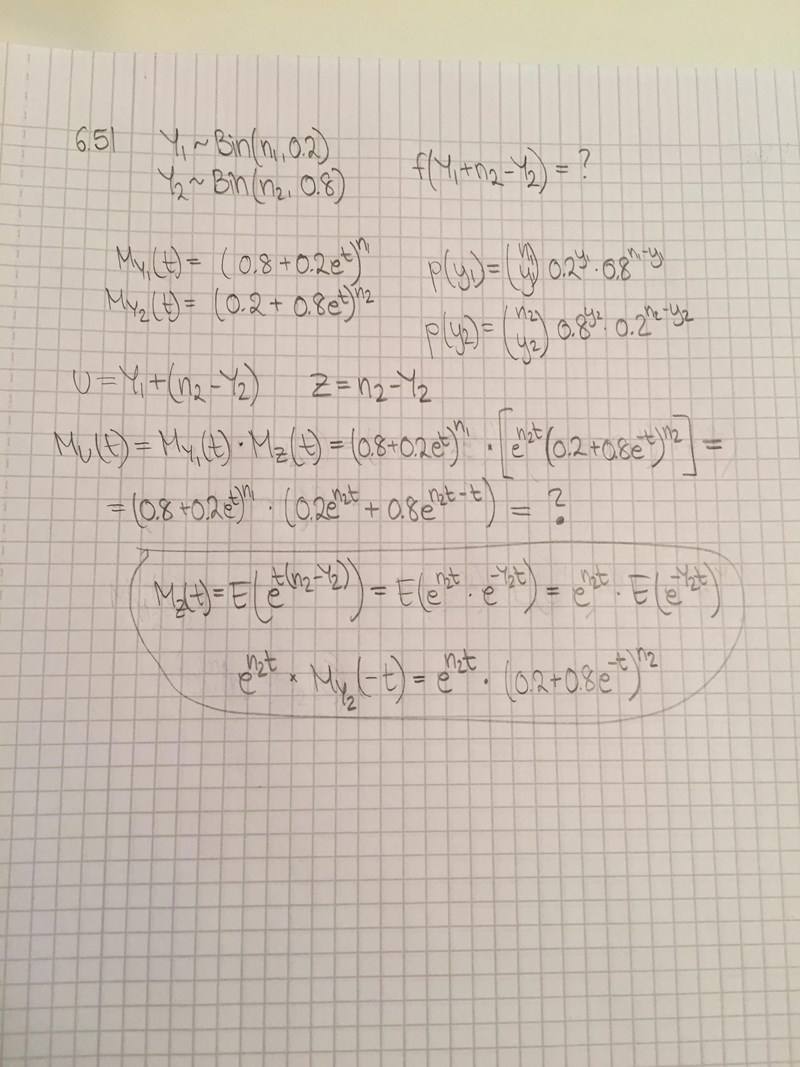 6.51 Y₁ ~ Bin(n₁, 0.2)
Y₂ ~ Bin(n₂, 0.8) f(Y₁+n₂-Y₂) = ?
M_Y₁(t) = (0.8+0.2e^t)^n₁ p(y₁) = (n₁ y₁) 0.2^y₁ · 0.8^n₁-y₁
M_Y₂(t) = (0.2+0.8e^t)^n₂
p(y₂) = (n₂ y₂) 0.8^y₂ · 0.2^n₂-y₂
U = Y₁+(n₂-Y₂) Z = n₂-Y₂
M_U(t) = M_Y₁(t) · M_Z(t) = (0.8+0.2e^t)^n₁ · [e^n₂t (0.2+0.8e^-t)^n₂] =
= (0.8+0.2e^t)^n₁ · (0.2e^n₂t + 0.8e^n₂t-t) = ?
M_Z(t) = E(e^t(n₂-Y₂)) = E(e^n₂t · e^-Y₂t) = e^n₂t · E(e^-Y₂t)
e^n₂t × M_Y₂(-t) = e^n₂t · (0.2+0.8e^-t)^n₂